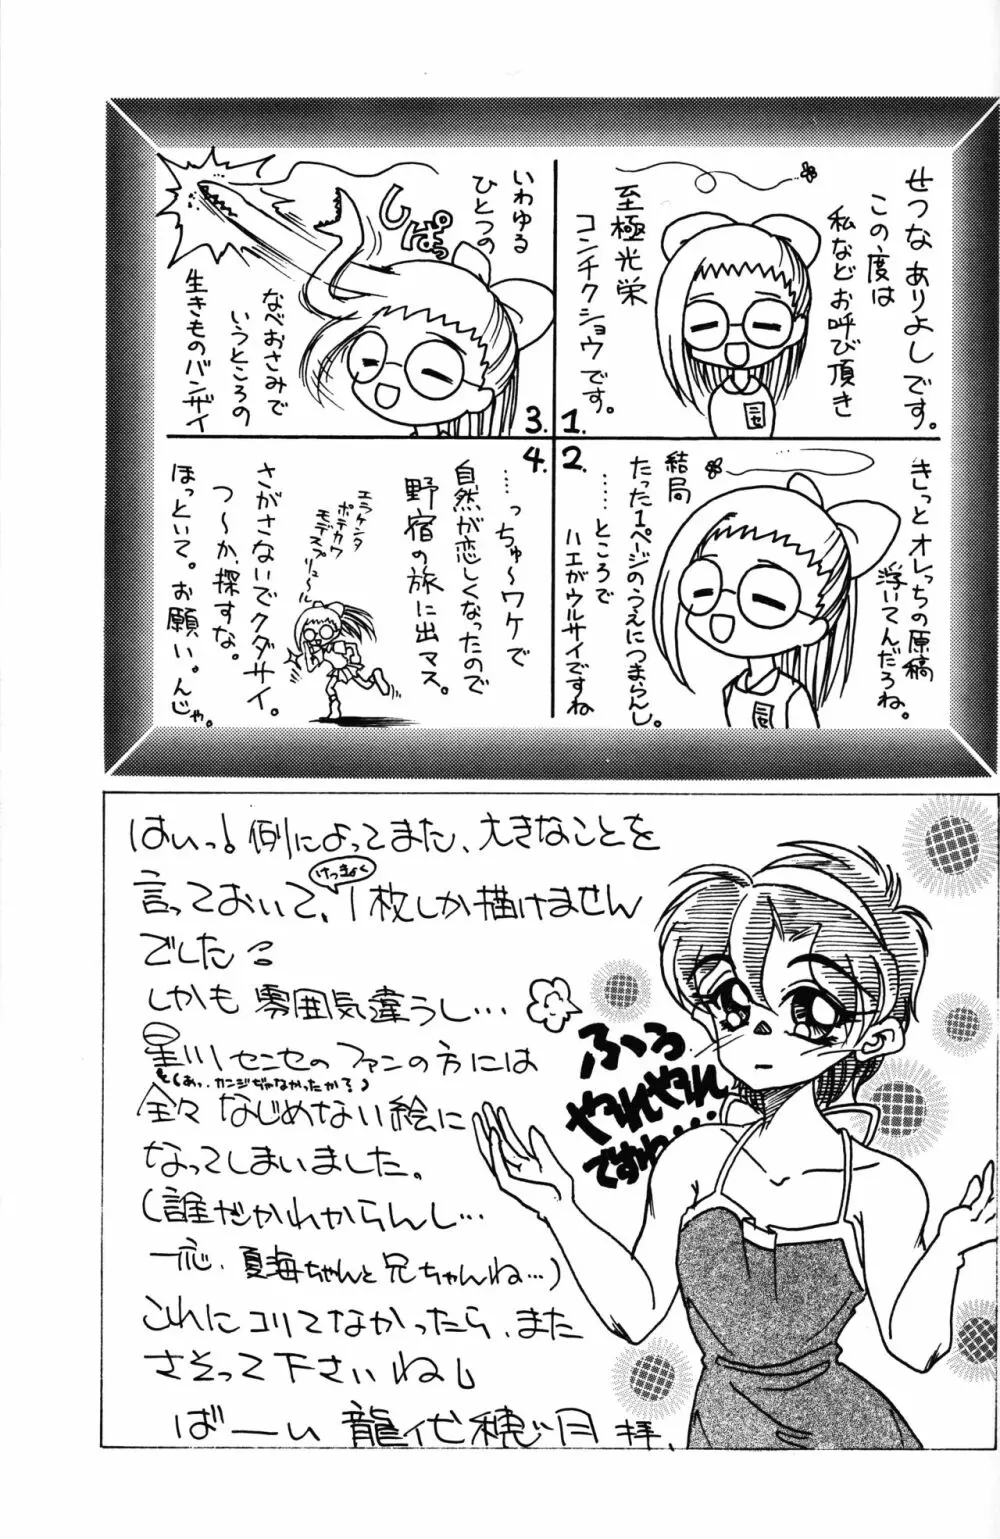 1.
せつな ありよしです。
この度は
私などお呼び頂き
至極光栄
コンチクショウです。
ニセ
2.
きっとオレっちの原稿
浮いてんだろね。
結局
たった1ページのうえにつまらんし。
……ところで
ハエがウルサイですね
ニセ
3.
いわゆる
ひとつの
しぱっ
なべおさみで
いうところの
生きものバンザイ
4.
……っちゅ〜ワケで
自然が恋しくなったので
野宿の旅に出マス。
エラケンタ
ポテカワ
モデスブリュ〜ル
さがさないでクダサイ。
つ〜か探すな。
ほっといて。お願い。んじゃ。
はいっ!例によってまた、大きなことを
言っておいて、けっきょく1枚しか描けません
でした
しかも 雰囲気違うし…
星川センセのファンの方には
(あっ、カンジぢゃなかったか?)
全々 なじめない絵に
なってしまいました。
(誰だかわからんし…
一応、夏海ちゃんと兄ちゃんね…)
これにコリてなかったら、また
さそって下さいねし
ばーい 龍代穂月 拝、
ふぅ
やれやれ
ですね…